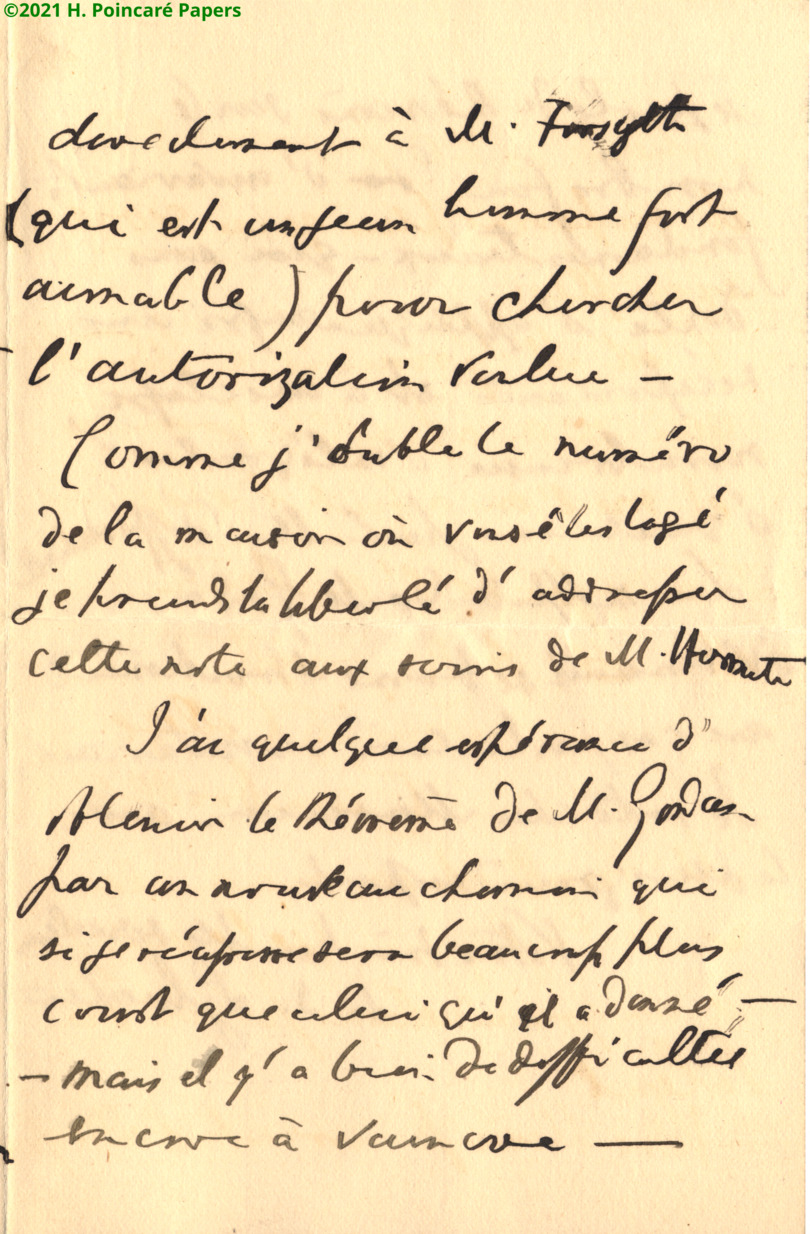 ©2021 H. Poincaré Papers
directement à M. Forsyth
(qui est un jeun homme fort
aimable) pour chercher
l'autorization voulue —
Comme j'oublie le numéro
de la maison où vous êtes logé
je prends la liberté d'adresser
cette note aux soins de M. Hermite
J'ai quelque espérance d'
obtenir le théorème de M. Gordan
par un nouveau chemin qui
si je réussisse sera beaucoup plus
court que celui qu'il a donné —
— mais il y'a bien de difficultés
encore à vaincre —